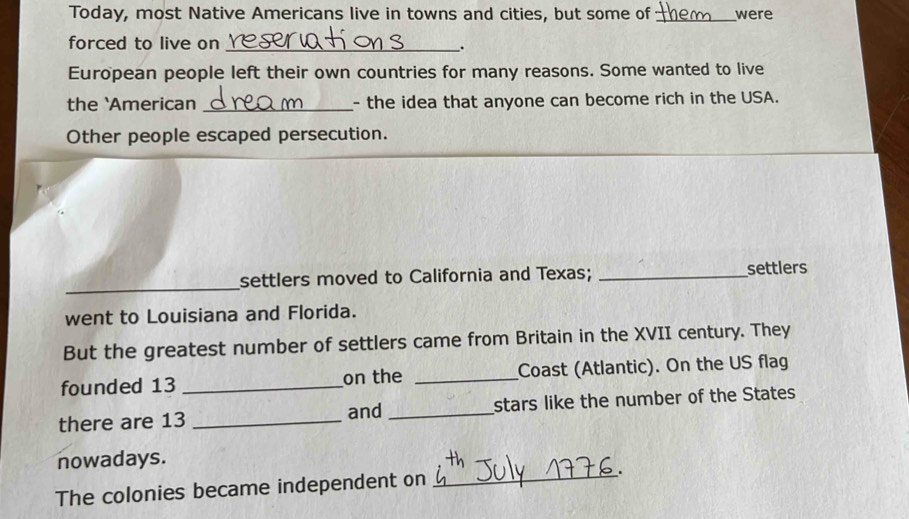 Today, most Native Americans live in towns and cities, but some of them were
forced to live on reservations.
European people left their own countries for many reasons. Some wanted to live
the 'American dream - the idea that anyone can become rich in the USA.
Other people escaped persecution.
____________settlers moved to California and Texas; ____________settlers
went to Louisiana and Florida.
But the greatest number of settlers came from Britain in the XVII century. They
founded 13 ____________on the ________Coast (Atlantic). On the US flag
there are 13 ____________ and ________stars like the number of the States
nowadays.
The colonies became independent on 4th July 1776.